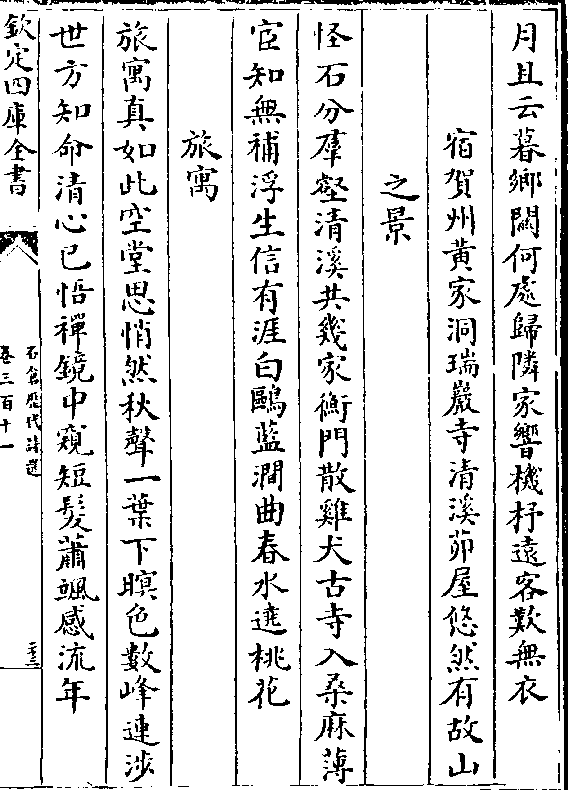 月且云暮鄉關何處歸隣家響機杼遠客歎無衣
宿賀州黃家洞瑞巖寺清溪茆屋悠然有故山
之景
怪石分羣壑清溪共幾家衡門散雞犬古寺入桑麻薄
宦知無補浮生信有涯白鷗藍澗曲春水遶桃花
旅寓
旅寓真如此空堂思悄然秋聲一葉下暝色數峰連涉
世方知命清心已悟禪鏡中窺短髮蕭颯感流年
欽定四庫全書
石倉歷代詩選
卷三百十一
二十三